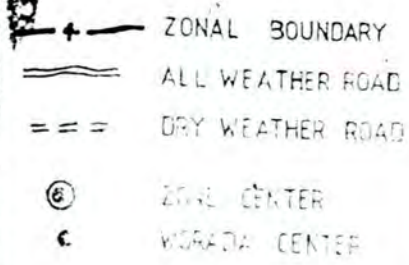 ZONAL BOUNDARY
ALL WEATHER ROAD
DRY WEATHER ROAD
ZONE CENTER
WORADA CENTER